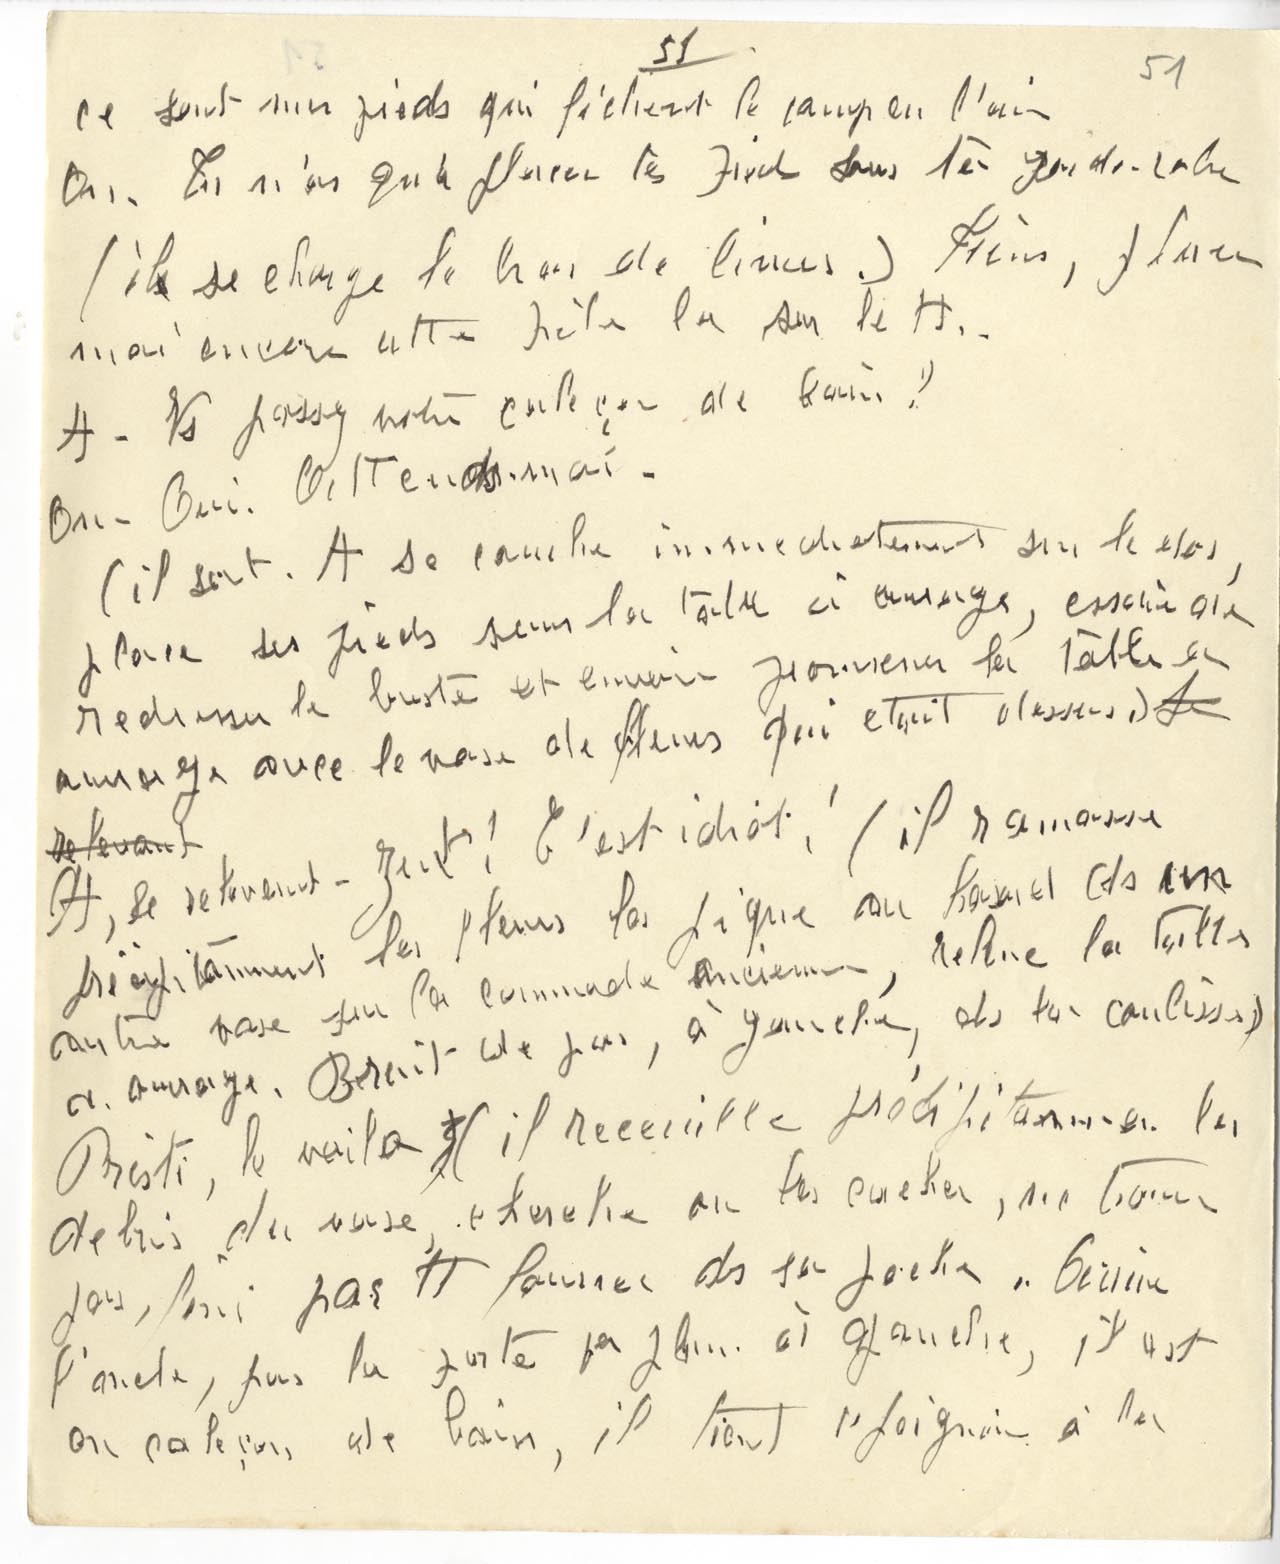 51
51
ce sont mes pieds qui fichent le camp en l'air
On. Tu n'as qu'à placer tes pieds sous ta garde-robe
(il se charge le bras de livres.) Tiens, place
moi encore cette pile là sur le tt..
A - Vs passez votre caleçon de bain?
On - Oui. Attends-moi.
(il sort. A se couche immédiatement sur le dos,
place ses pieds sous la table à ouvrage, essaie de
redresser le buste et envoie promener la table à
ouvrage avec le vase de fleurs qui était dessus.) Se
relevant
A, se relevant - Zut! C'est idiot! (il ramasse
précipitamment les fleurs les pique au hasard ds un
autre vase sur la commode ancienne, relève la table
à ouvrage. Bruit de pas, à gauche, ds la coulisse)
Pristi, le voilà (il recueille précipitamment les
débris du vase, cherche où les cacher, ne trouve
pas, finit par tt fourrer ds sa poche. Arrive
l'oncle, par la porte 1er plan à gauche, il est
en caleçon de bain, il tient 1 peignoir à la